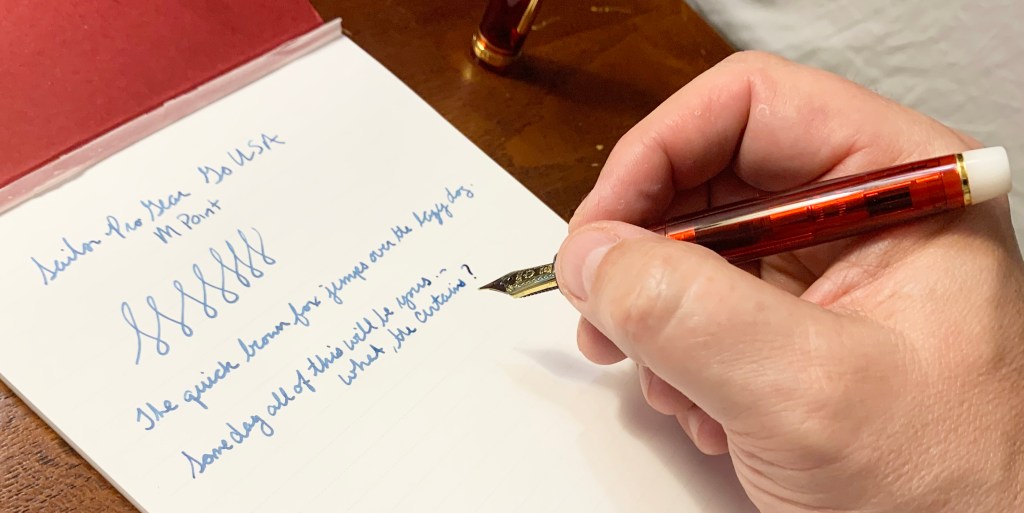 Sailor Pro Gear Go USA
M Point
The quick brown fox jumps over the lazy dog.
Someday all of this will be yours...
what, the curtains?